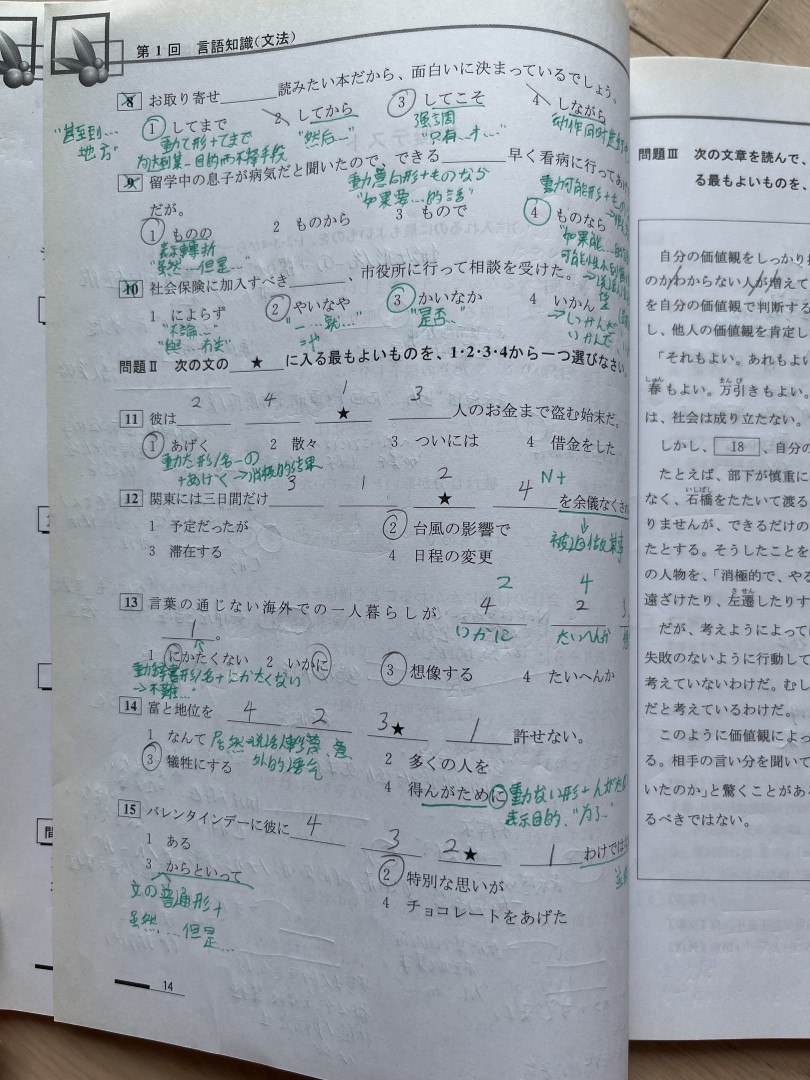 第1回 言語知識(文法)
8 お取り寄せ______読みたい本だから、面白いに決まっているでしょう。
1 してまで 2 してから 3 してこそ 4 しながら
"甚至到… 地方"
動て形+てまで
为达到某一目的而不择手段
"然后…"
強調
"只有…才…"
9 留学中の息子が病気だと聞いたので、できる______早く看病に行ってあ
だが。
動意向形+ものなら
"如果要…的話"
1 ものの 2 ものから 3 もので 4 ものなら
表示轉折
"虽然…但是…"
10 社会保険に加入すべき______、市役所に行って相談を受けた。
1 によらず 2 やいなや 3 かいなか 4 いかん
"不論…"
"一…就…"
"是否…"
問題Ⅱ 次の文の__★__に入る最もよいものを、1・2・3・4から一つ選びなさい。
2 4 1 3
11 彼は____ ____ __★__ ____人のお金まで盗む始末だ。
1 あげく 2 散々 3 ついには 4 借金をした
動た形/名-の
+あげく→消極的結果
3 1 2 4 N+
12 関東には三日間だけ____ ____ __★__ ____を余儀なくさ
1 予定だったが 2 台風の影響で
3 滞在する 4 日程の変更
被迫做某事
2 4
13 言葉の通じない海外での一人暮らしが 4 2 3
いかに たいへんか
1 。
1 にかたくない 2 いかに 3 想像する 4 たいへんか
動辞書形/名+にかたくない
→不難…
14 富と地位を 4 2 3★ 1 許せない。
1 なんて 2 多くの人を
3 犠牲にする 4 得んがために
動ない形+んがため
表示目的、"为了…"
15 バレンタインデーに彼に 4 3 2★ 1 わけでは
1 ある 2 特別な思いが
3 からといって 4 チョコレートをあげた
文の普通形+
虽然…但是…
14
問題Ⅲ 次の文章を読んで、
る最もよいものを、
自分の価値観をしっかり
のかわからない人が増えて
を自分の価値観で判断する
し、他人の価値観を肯定し
「それもよい。あれもよい
春もよい。万引きもよい。
は、社会は成り立たない。
しかし、18、自分の
たとえば、部下が慎重に
なく、石橋をたたいて渡る
りませんが、できるだけの
たとする。そうしたことを
の人物を、「消極的で、やる
遠ざけたり、左遷したりす
だが、考えようによって
失敗のないように行動して
考えていないわけだ。むし
だと考えているわけだ。
このように価値観によっ
る。相手の言い分を聞いて
いたのか」と驚くことがあ
るべきではない。